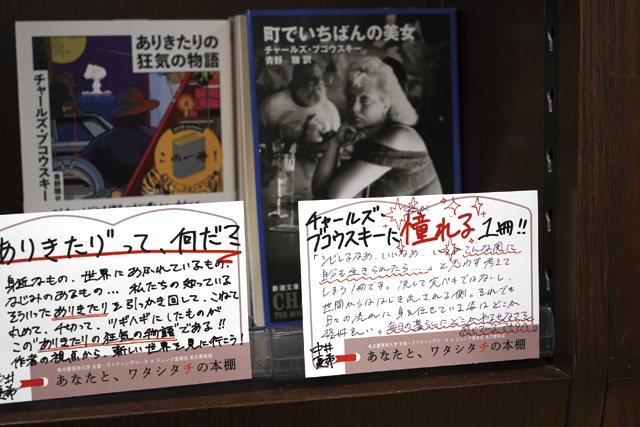 ありきたりの
狂気の物語
チャールズ・ブコウスキー
青野聰 訳
この一冊!
町でいちばんの美女
チャールズ・ブコウスキー
青野 聰 訳
新潮文庫
ありきたりって、何だ?
身近なもの、世界にあふれているもの、
なじみのあるもの… 私たちの知っている
そういったありきたりを引っかき回して、こねて
丸めて、千切って、ツギハギにしたものが
この"ありきたりの狂気の物語"である!!
作者の視点から、新しい世界を見に行こう!
名古屋芸術大学 文芸・ライティングコース × ジュンク堂書店 名古屋栄店
あなたと、ワタシタチの本棚
チャールズ・
ブコウスキーに憧れる1冊!!
「シビレるなあ、いいなあ、
こんな風に
自分も生きられたら…」と思わず考えて
しまう1冊です。決して完ペキではないし、
世間からははじき出される側。それでも
日々の流れに身を任せている姿はどこか
格好良い。毎日の暮らし
名古屋芸術大学 文芸・ライティングコース × ジュンク堂書店 名古屋栄店
あなたと、ワタシタチの本棚